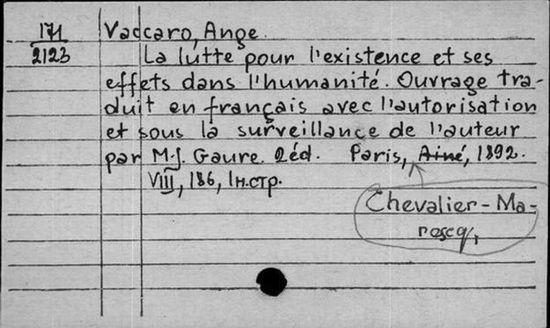 171
2123
Vaccaro, Ange.
La lutte pour l'existence et ses
effets dans l'humanité. Ouvrage tra-
duit en français avec l'autorisation
et sous la surveillance de l'auteur
par M-J. Gaure. 2éd. Paris, Ainé, 1892.
VIII, 186, 1 н.стр.
Chevalier-Ma-
rescq,